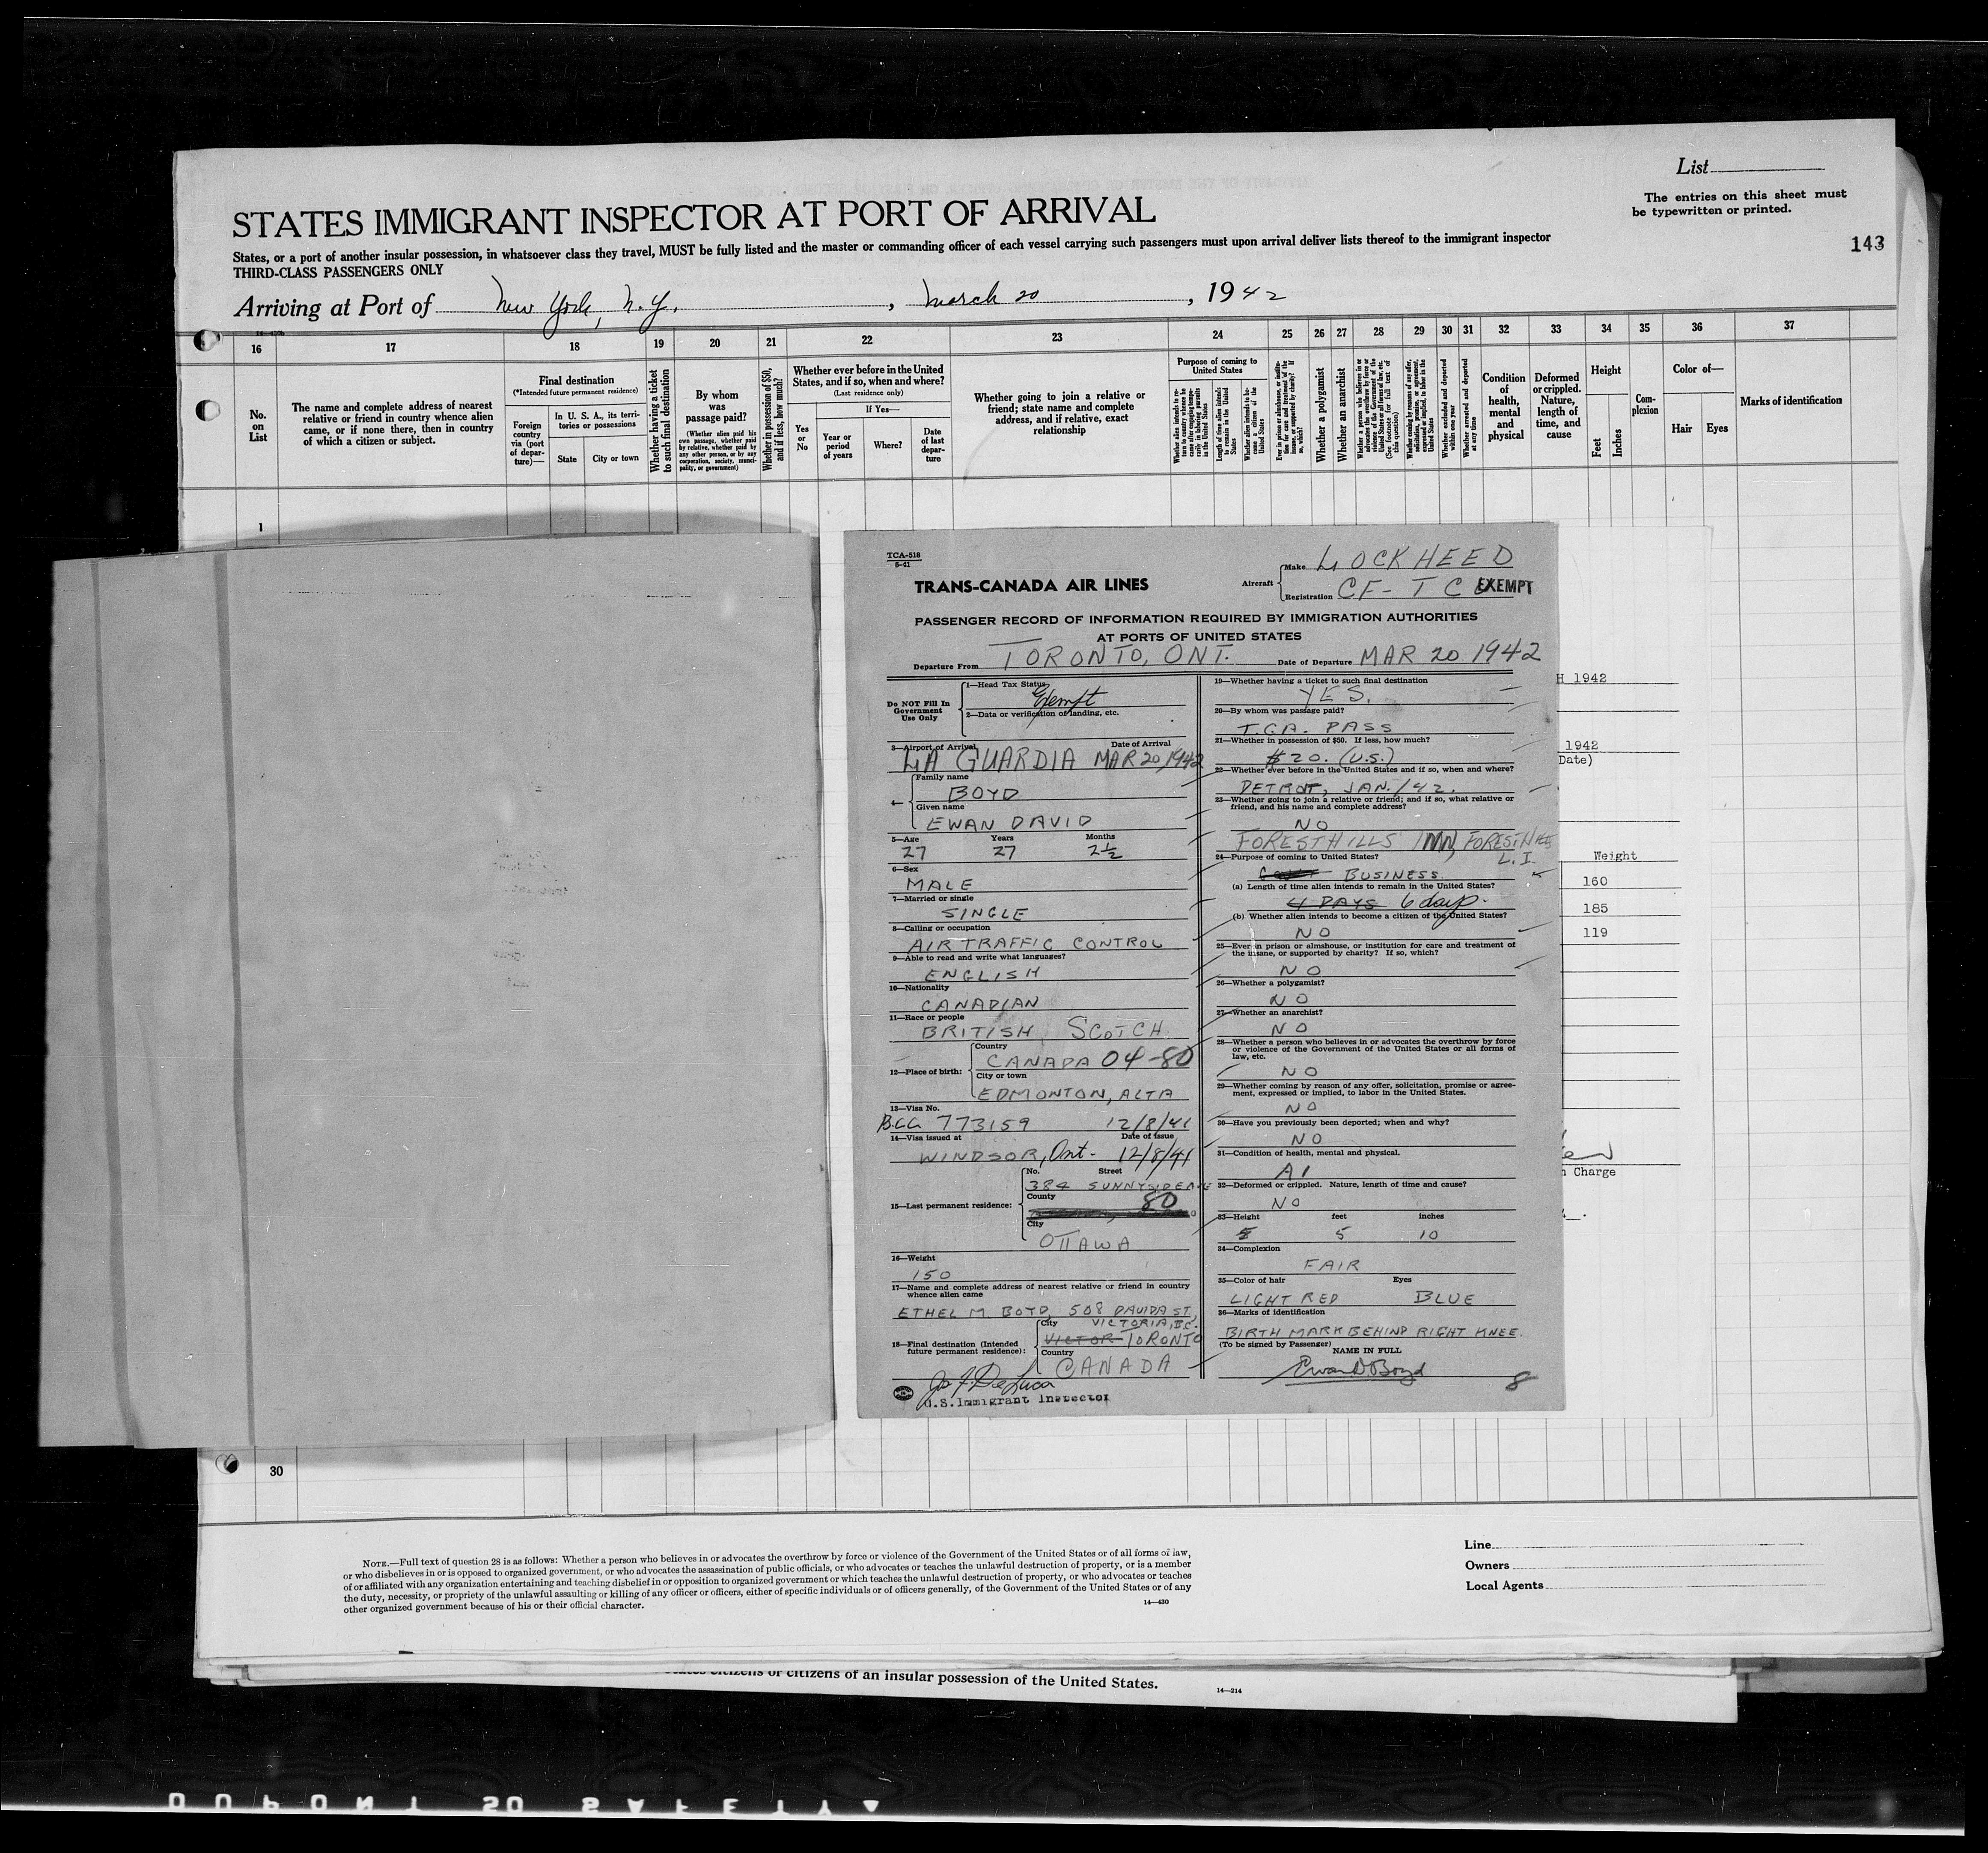 List
The entries on this sheet must
be typewritten or printed.
143
STATES IMMIGRANT INSPECTOR AT PORT OF ARRIVAL
States, or a port of another insular possession, in whatsoever class they travel, MUST be fully listed and the master or commanding officer of each vessel carrying such passengers must upon arrival deliver lists thereof to the immigrant inspector
THIRD-CLASS PASSENGERS ONLY
Arriving at Port of New York, N.Y. , March 20 , 1942
16 17 18 19 20 21 22 23 24 25 26 27 28 29 30 31 32 33 34 35 36 37
No.
on
List
The name and complete address of nearest
relative or friend in country whence alien
came, or if none there, then in country
of which a citizen or subject.
Final destination
(*Intended future permanent residence)
Foreign
country
via (port
of depar-
ture)—
In U. S. A., its terri-
tories or possessions
State
City or town
Whether having a ticket
to such final destination
By whom
was
passage paid?
(Whether alien paid his
own passage, whether paid
by relative, whether paid by
any other person, or by any
corporation, society, munici-
pality, or government)
Whether in possession of $50,
and if less, how much?
Whether ever before in the United
States, and if so, when and where?
(Last residence only)
If Yes—
Yes
or
No
Year or
period
of years
Where?
Date
of last
depar-
ture
Whether going to join a relative or
friend; state name and complete
address, and if relative, exact
relationship
Purpose of coming to
United States
Length of time alien intends
to remain in the United
States
Whether alien intends to be-
come a citizen of the
United States
Whether a polygamist
Whether an anarchist
Whether arrested and deported
within one year
Whether arrested and deported
at any time
Condition
of
health,
mental
and
physical
Deformed
or crippled.
Nature,
length of
time, and
cause
Height
Feet
Inches
Com-
plexion
Color of—
Hair
Eyes
Marks of identification
1
TCA-518
5-41
TRANS-CANADA AIR LINES
Aircraft
Make LOCKHEED
Registration CF-TC
EXEMPT
PASSENGER RECORD OF INFORMATION REQUIRED BY IMMIGRATION AUTHORITIES
AT PORTS OF UNITED STATES
Departure From TORONTO, ONT. Date of Departure MAR 20 1942
Do NOT Fill In
Government
Use Only
1—Head Tax Status
Exempt
2—Data or verification of landing, etc.
3—Airport of Arrival Date of Arrival
LA GUARDIA MAR 20, 1942
4—
Family name
BOYD
Given name
EWAN DAVID
5—Age Years Months
27 27 2½
6—Sex
MALE
7—Married or single
SINGLE
8—Calling or occupation
AIR TRAFFIC CONTROL
9—Able to read and write what languages?
ENGLISH
10—Nationality
CANADIAN
11—Race or people
BRITISH SCOTCH
12—Place of birth:
Country
CANADA 04-80
City or town
EDMONTON, ALTA
13—Visa No.
773159 12/8/41
14—Visa issued at Date of Issue
WINDSOR, Ont- 12/8/41
15—Last permanent residence:
No. Street
384 SUNNYSIDE AVE
County
80
City
OTTAWA
16—Weight
150
17—Name and complete address of nearest relative or friend in country
whence alien came
ETHEL M. BOYD, 508 DAVIDA ST.
VICTORIA, B.C.
18—Final destination (Intended
future permanent residence):
City
VICTOR TORONTO
Country
CANADA
Jos F. DeLuca
U.S. Immigrant Inspector
19—Whether having a ticket to such final destination
YES.
20—By whom was passage paid?
T.C.A. PASS
21—Whether in possession of $50. If less, how much?
$20. (U.S.)
22—Whether ever before in the United States and if so, when and where?
DETROIT, JAN./42.
23—Whether going to join a relative or friend; and if so, what relative or
friend, and his name and complete address?
NO
FORESTHILLS INN, FOREST HILLS
L.I.
24—Purpose of coming to United States?
BUSINESS.
(a) Length of time alien intends to remain in the United States?
4 DAYS 6 days.
(b) Whether alien intends to become a citizen of the United States?
NO
25—Ever in prison or almshouse, or institution for care and treatment of
the insane, or supported by charity? If so, which?
NO
26—Whether a polygamist?
NO
27—Whether an anarchist?
NO
28—Whether a person who believes in or advocates the overthrow by force
or violence of the Government of the United States or all forms of
law, etc.
NO
29—Whether coming by reason of any offer, solicitation, promise or agree-
ment, expressed or implied, to labor in the United States.
NO
30—Have you previously been deported; when and why?
NO
31—Condition of health, mental and physical.
A1
32—Deformed or crippled. Nature, length of time and cause?
NO
33—Height feet inches
5 10
34—Complexion
FAIR
35—Color of hair Eyes
LIGHT RED BLUE
36—Marks of identification
BIRTH MARK BEHIND RIGHT KNEE.
(To be signed by Passenger)
NAME IN FULL
Ewan D. Boyd
8
H 1942
1942
Date)
Weight
160
185
119
n Charge
30
NOTE.—Full text of question 28 is as follows: Whether a person who believes in or advocates the overthrow by force or violence of the Government of the United States or of all forms of law,
or who disbelieves in or is opposed to organized government, or who advocates the assassination of public officials, or who advocates or teaches the unlawful destruction of property, or is a member
of or affiliated with any organization entertaining and teaching disbelief in or opposition to organized government or which teaches the unlawful destruction of property, or who advocates or teaches
the duty, necessity, or propriety of the unlawful assaulting or killing of any officer or officers, either of specific individuals or of officers generally, of the Government of the United States or of any
other organized government because of his or their official character.
14—430
Line
Owners
Local Agents
citizens or citizens of an insular possession of the United States.
14—214
DUPONT SAFETY